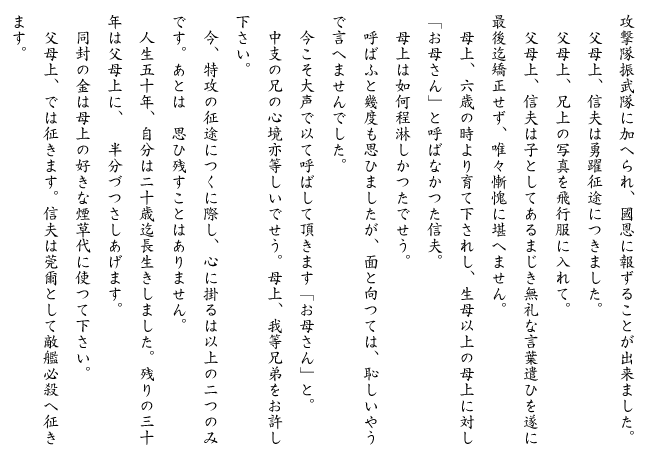 攻撃隊振武隊に加へられ、國恩に報ずることが出来ました。
父母上、信夫は勇躍征途につきました。
父母上、兄上の写真を飛行服に入れて。
父母上、信夫は子としてあるまじき無礼な言葉遣ひを遂に
最後迄矯正せず、唯々慚愧に堪へません。
母上、六歳の時より育て下されし、生母以上の母上に対し
「お母さん」と呼ばなかつた信夫。
母上は如何程淋しかつたでせう。
呼ばふと幾度も思ひましたが、面と向つては、恥しいやう
で言へませんでした。
今こそ大声で以て呼ばして頂きます「お母さん」と。
中支の兄の心境亦等しいでせう。母上、我等兄弟をお許し
下さい。
今、特攻の征途につくに際し、心に掛るは以上の二つのみ
です。あとは 思ひ残すことはありません。
人生五十年、自分は二十歳迄長生きしました。残りの三十
年は父母上に、 半分づつさしあげます。
同封の金は母上の好きな煙草代に使つて下さい。
父母上、では征きます。信夫は莞爾として敵艦必殺へ征き
ます。